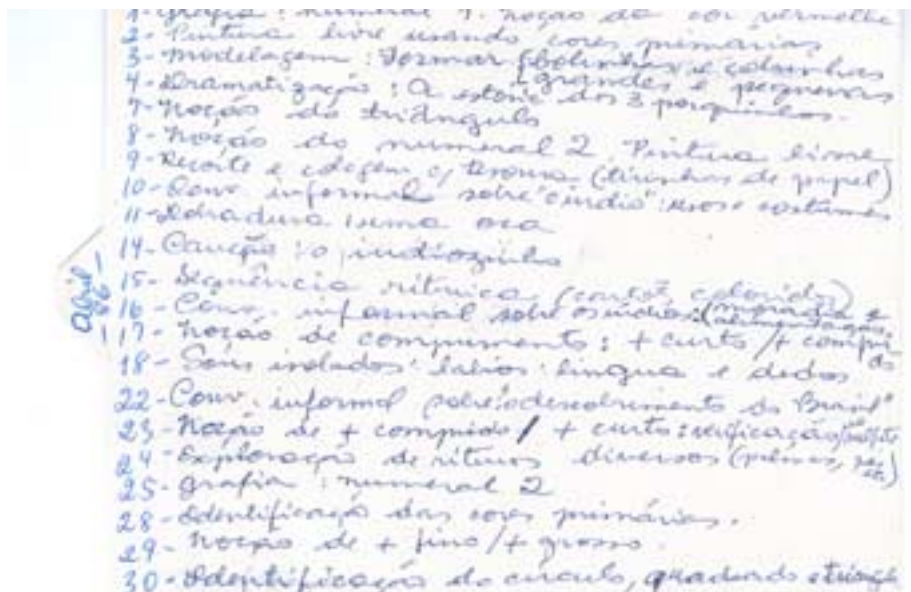 1-Grafia: numeral 1. Noção da cor vermelha
2-Pintura livre usando cores primárias
3-Modelagem: Formar (bolinhas e cobrinhas
(grandes e pequenas
4-Dramatização: A estória dos 3 porquinhos.
7-Noção do triângulo
8-Noção do numeral 2. Pintura livre
9-Recorte e colagem c/ tesoura (tirinhas de papel)
10-Conv informal sobre "o índio": usos e costumes
11-Dobradura: uma oca
14-Canção: o indiozinho
Abril
86
15-Sequência rítmica (cartões coloridos)
16-Conv. informal sobre os índios: (moradia e
alimentação.
17-Noção de comprimento: + curto/+ compri
do
18-Sons isolados: lábios: língua e dedos
22-Conv. informal sobre: "o descobrimento do Brasil"
23-Noção de + comprido / + curto: verificação
24-Exploração de ritmos diversos (palmas, pés
etc)
25-Grafia: numeral 2
28-Identificação das cores primárias.
29-Noção de + fino/+ grosso.
30-Identificação do círculo, quadrado e triâng